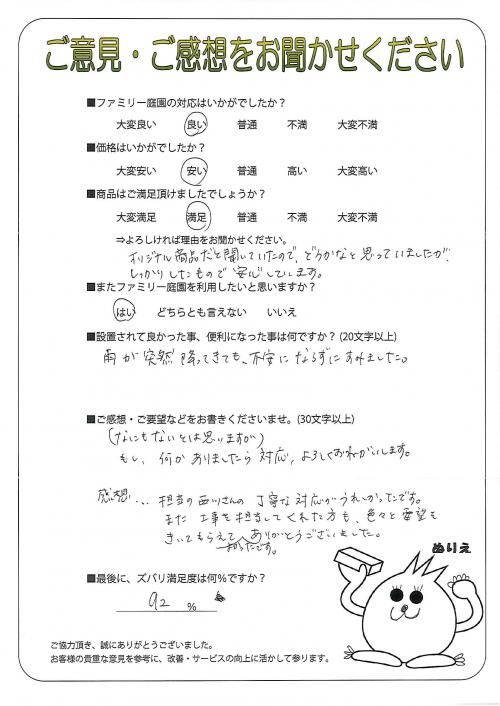 ご意見・ご感想をお聞かせください
■ファミリー庭園の対応はいかがでしたか？
大変良い 良い 普通 不満 大変不満
■価格はいかがでしたか？
大変安い 安い 普通 高い 大変高い
■商品はご満足頂けましたでしょうか？
大変満足 満足 普通 不満 大変不満
⇒よろしければ理由をお聞かせください。
オリジナル商品だと聞いていたので、どうかなと思っていましたが、
しっかりしたもので安心しています。
■またファミリー庭園を利用したいと思いますか？
はい どちらとも言えない いいえ
■設置されて良かった事、便利になった事は何ですか？(20文字以上)
雨が突然降ってきても、不安にならずにすみました。
■ご感想・ご要望などをお書きくださいませ。(30文字以上)
(なにもないとは思いますが)
もし、何かありましたら対応、よろしくおねがいします。
感想... 担当の西川さんの丁寧な対応がうれしかったです。
また工事を担当してくれた方も、色々と要望も
きいてもらえて ありがとうございました。
■最後に、ズバリ満足度は何％ですか？
92 %
ぬりえ
ご協力頂き、誠にありがとうございました。
お客様の貴重な意見を参考に、改善・サービスの向上に活かして参ります。